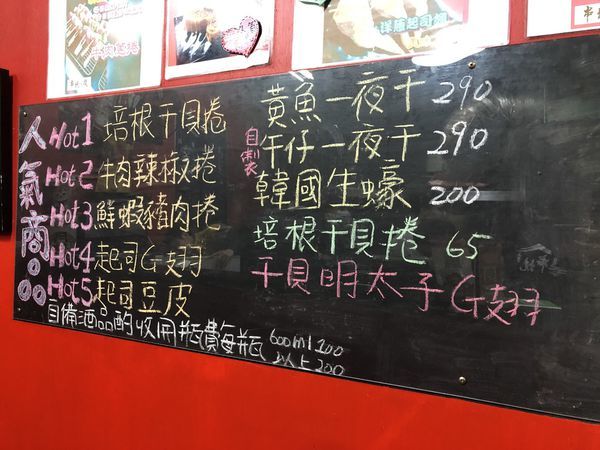 人氣商品
Hot1 培根干貝捲
Hot2 牛肉辣椒捲
Hot3 鮮蝦豬肉捲
Hot4 起司G翅
Hot5 起司豆皮
自備酒品酌收用瓶費每瓶 600ml 100
以上 200
黃魚一夜干 290
自制 午仔一夜干 290
韓國生蠔 200
培根干貝捲 65
干貝明太子G翅